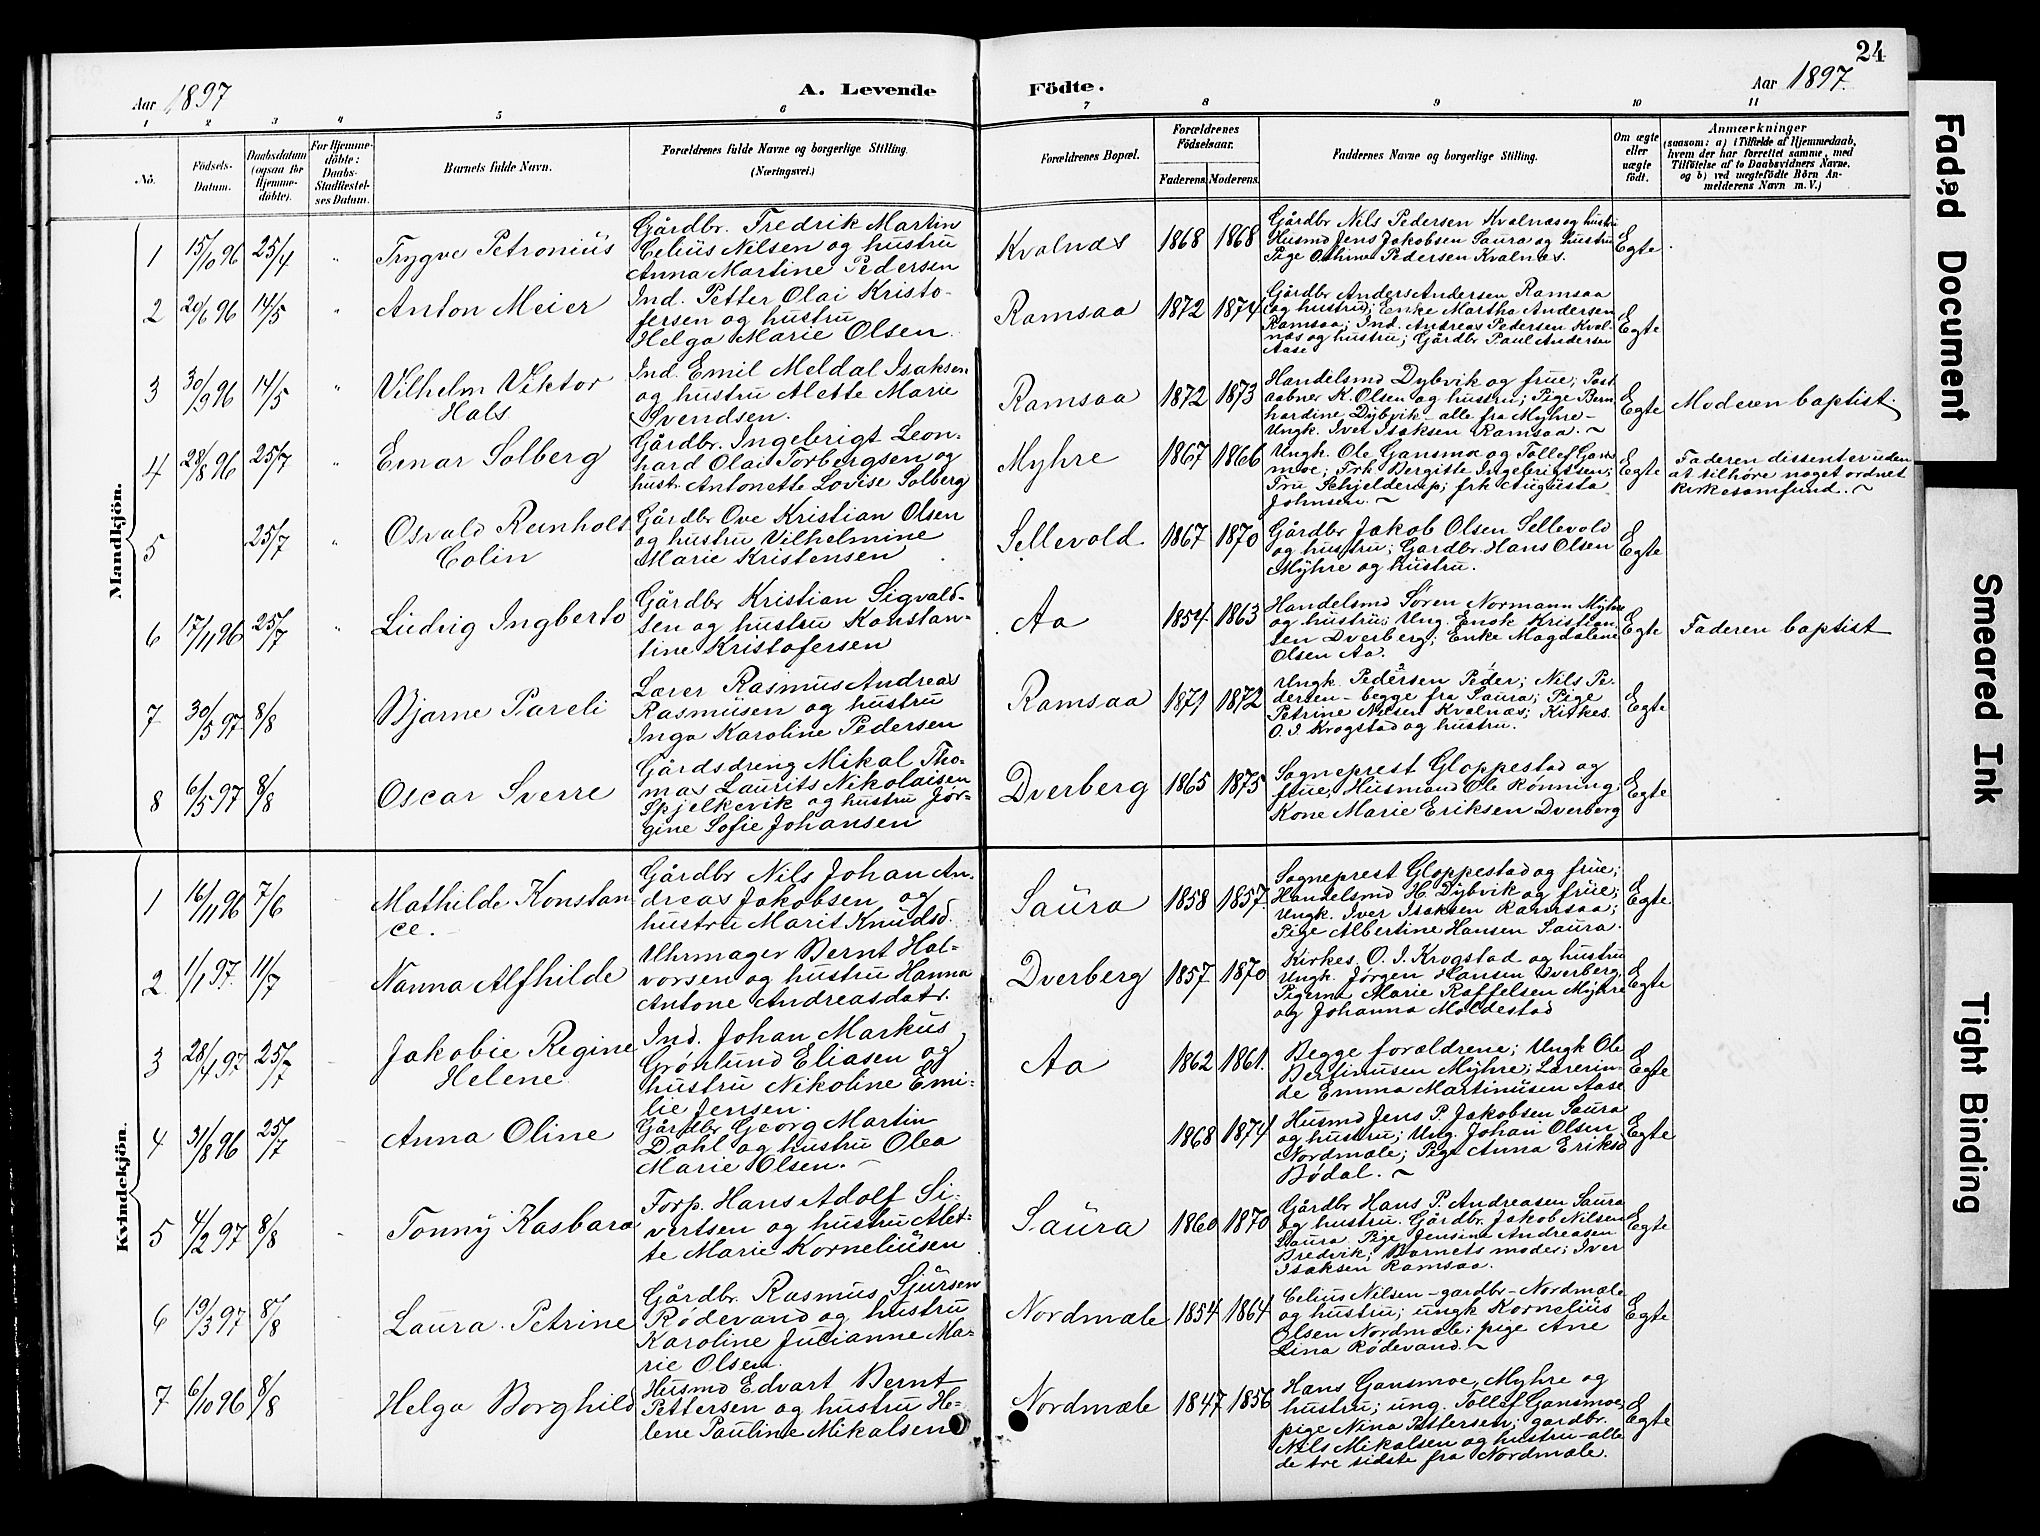 24
Aar 1897
A. Levende
Födte.
Aar 1897.
1 2 3 4 5 6 7 8 9 10 11
No.
Födsels-
Datum.
Daabsdatum
(ogsaa for
Hjemme-
döbte).
For Hjemme-
döbte:
Daabs-
Stadfæstel-
ses Datum.
Barnets fulde Navn.
Forældrenes fulde Navne og borgerlige Stilling.
(Næringsvei.)
Forældrenes Bopæl.
Forældrenes
Födselsaar.
Faderens. Moderens.
Faddernes Navne og borgerlige Stilling.
Om ægte
eller
uægte
födt.
Anmærkninger
(saasom: a) i Tilfælde af Hjemmedaab,
hvem der har forrettet samme, med
Tilföielse af to Daabsvidners Navne,
og b) ved uægtefödte Börn An-
melderens Navn m. V.)
Mandkjön.
1 15/10 96 25/4 " Trygve Petronius
Gårdbr. Fredrik Martin
Celius Nilsen og hustru
Anna Martine Pedersen
Kvalnæs 1868 1868
Gårdbr Nils Pedersen Kvalnæs og hustru
Husmd Jens Jakobsen Saura og hustru
Pige Othine Pedersen Kvalnæs.
Egte
2 20/6 96 14/5 " Anton Meier
Ind. Petter Olai Kristo-
fersen og hustru
Helga Marie Olsen.
Ramsaa 1872 1874
Gårdbr Anders Andersen Ramsaa
og hustru; Enke Martha Andersen
Ramsaa; Ind. Andreas Pedersen Kval-
næs og hustru; Gårdbr Paul Andersen
Aase
Egte
3 30/9 96 14/5 " Vilhelm Viktor
Hals
Ind. Emil Meldal Isaksen
og hustru Alette Marie
Svendsen.
Ramsaa 1872 1873
Handelsmd Dybvik og frue; Post-
aabner K. Olsen og hustru; Pige Bern-
hardine Dybvik - alle fra Myhre -
Ungk. Iver Isaksen Ramsaa. ~
Egte Moderen baptist.
4 28/8 96 25/7 " Einar Solberg
Gårdbr. Ingebrigt Leon-
hard Olai Torbergsen og
hustr. Antonette Lovise Solberg
Myhre 1867 1866
Ungk. Ole Gansmo og Tollef Gans-
moe; Frk Bergitte Ingebrigtsen;
Fru Schjelderup; frk Augusta
Johnsen. ~
Egte Faderen dissenter uden
at tilhöre noget ordnet
kirkesamfund. ~
5 25/7 " Osvald Reinholt
Colin
Gårdbr Ove Kristian Olsen
og hustru Vilhelmine
Marie Kristensen
Sellevold 1867 1870
Gårdbr Jakob Olsen Sellevold
og hustru; Gardbr. Hans Olsen
Myhre og hustru.
Egte
6 17/11 96 25/7 " Ludvig Ingberto
Gårdbr Kristian Sigvald-
sen og hustru Konstan-
tine Kristofersen
Aa 1854 1863
Handelsmd Søren Normann Myhre
og hustru; Ung. Enok Kristian-
sen Dverberg; Enke Magdalene
Olsen Aa.
Egte Faderen baptist
7 30/5 97 8/8 Bjarne Pareli
Lærer Rasmus Andreas
Rasmusen og hustru
Inga Karoline Pedersen
Ramsaa 1871 1872
Ungk. Pedersen Peder; Nils Pe-
dersen - begge fra Saura; Pige
Petrine Nilsen Kvalnæs; Kirkes.
O. J. Krogstad og hustru.
Egte
8 6/5 97 8/8 Oscar Sverre
Gårdsdreng Mikal Tho-
mas Laurits Nikolaisen
Spjelkevik og hustru Jør-
gine Sofie Johansen
Dverberg 1865 1875
Sogneprest Gloppestad og
frue; Husmand Ole Rönning;
Kone Marie Eriksen Dverberg
Egte
Kvindekjön.
1 16/11 96 7/6 Mathilde Konstan
ce.
Gårdbr Nils Johan An-
dreas Jakobsen og
hustru Marit Knudsd.
Saura 1858 1857
Sogneprest Gloppestad og frue;
Handelsmd H. Dybvik og frue;
Ungk. Iver Isaksen Ramsaa;
Pige Albertine Hansen Saura.
Egte
2 1/1 97 11/7 Nanna Alfhilde
Uhrmager Bernt Hal-
vorsen og hustru Hanna
Antone Andreasdatr.
Dverberg 1857 1870
Kirkes. O. J. Krogstad og hustru
Ungk. Jørgen Hansen Dverberg;
Pigerne Marie Raffelsen Myhre
og Johanna Moldestad
Egte
3 28/4 97 25/7 Jakobie Regine
Helene
Ind. Johan Markus
Grönlund Eliasen og
hustru Nikoline Emi-
lie Jensen.
Aa 1862 1861.
Begge forældrene; Ungk Ole
Bertinusen Myhre; Lærerin-
de Emma Martinusen Aase
Egte
4 31/8 96 25/7 Anna Oline
Gårdbr Georg Martin
Dahl og hustru Olea
Marie Olsen. ~
1868 1874
Husmd Jens P. Jakobsen Saura
og hustru; Ung. Johan Olsen
Nordmæle; Pige Anna Eriksd
Bödal. ~
Egte
5 4/2 97 8/8 Tonny Kasbara
Forp. Hans Adolf Si-
vertsen og hustru Alet-
te Marie Korneliusen
Saura 1860 1870
Gårdbr Hans P. Andreasen Saura
og hustru. Gårdbr. Jakob Nilsen
Saura Pige Jensine Andreasen
Bredvik; Barnets moder; Iver
Isaksen Ramsaa.
Egte
6 19/3 97 8/8 Laura Petrine
Gårdbr. Rasmus Sjursen
Rödevand og hustru
Karoline Julianne Ma-
rie Olsen.
Nordmæle 1854 1864
Celius Nilsen - gardbr - Nordmæle
og hustru; ungk Kornelius
Olsen Nordmæle; pige Ane
Lina Rödevand. ~
Egte
7 6/10 96 8/8 Helga Borghild
Husmd Edvart Bernt
Pettersen og hustru He-
lene Pauline Mikalsen
Nordmæle 1847 1856
Hans Gansmoe, Myhre og
hustru; ung. Tollef Gansmoe;
pige Nina Pettersen; gardbr.
Nils Mikalsen og hustru - alle
de tre sidste fra Nordmæle.
Egte
Faded Document
Smeared Ink
Tight Binding